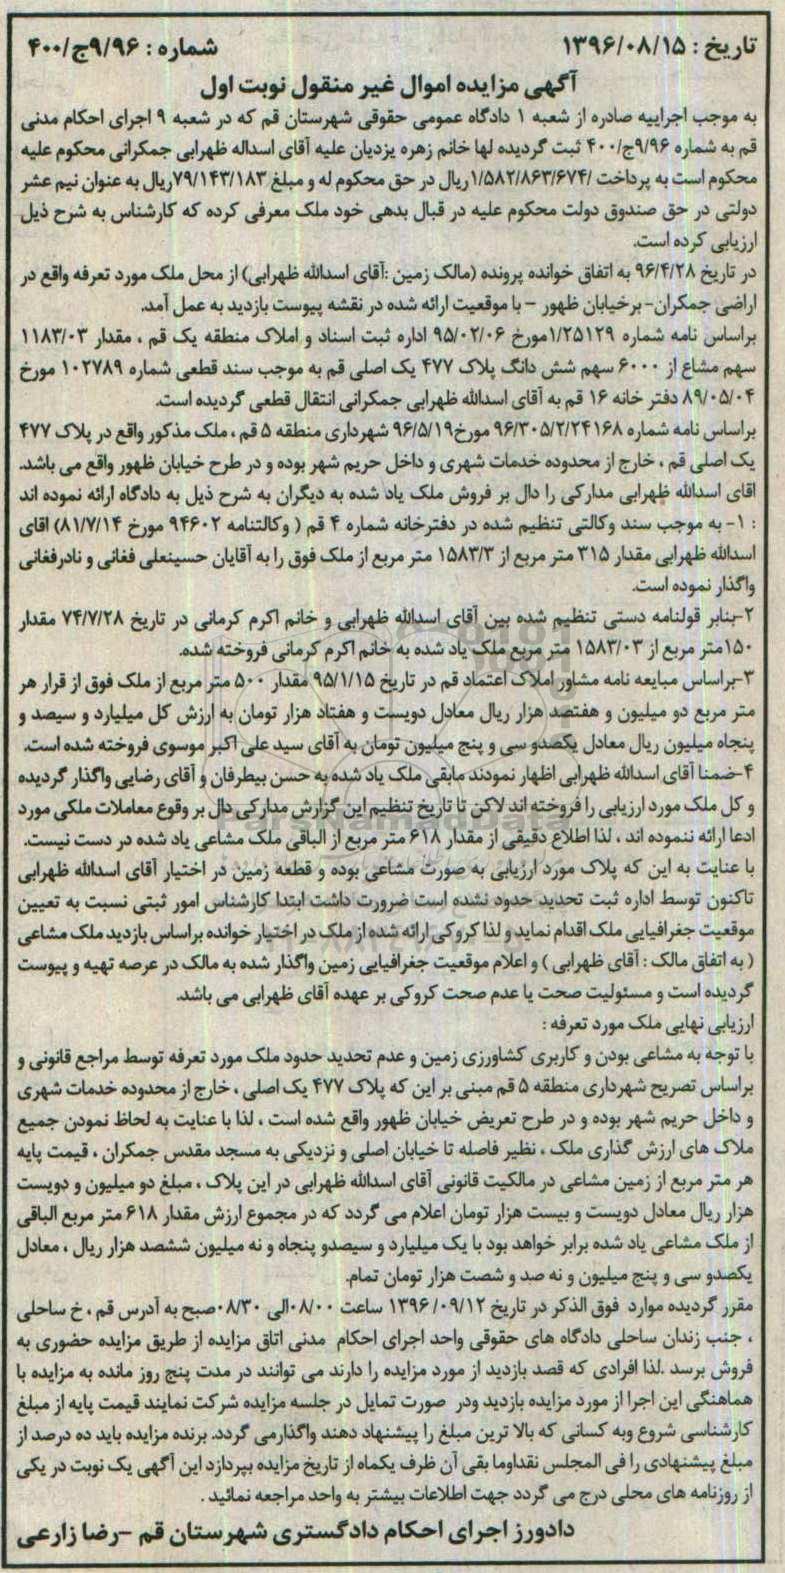 تاریخ : ۱۳۹۶/۰۸/۱۵
شماره : ۹/۹۶ج/۴۰۰
آگهی مزایده اموال غیر منقول نوبت اول
به موجب اجراییه صادره از شعبه ۱ دادگاه عمومی حقوقی شهرستان قم که در شعبه ۹ اجرای احکام مدنی
قم به شماره ۹/۹۶ج/۴۰۰ ثبت گردیده لها خانم زهره یزدیان علیه آقای اسداله ظهرابی جمکرانی محکوم علیه
محکوم است به پرداخت /۱/۵۸۲/۸۶۳/۶۷۴ریال در حق محکوم له و مبلغ ۷۹/۱۴۳/۱۸۳ریال به عنوان نیم عشر
دولتی در حق صندوق دولت محکوم علیه در قبال بدهی خود ملک معرفی کرده که کارشناس به شرح ذیل
ارزیابی کرده است.
در تاریخ ۹۶/۴/۲۸ به اتفاق خوانده پرونده (مالک زمین :آقای اسدالله ظهرابی) از محل ملک مورد تعرفه واقع در
اراضی جمکران- برخیابان ظهور – با موقعیت ارائه شده در نقشه پیوست بازدید به عمل آمد.
براساس نامه شماره ۱/۲۵۱۲۹مورخ ۹۵/۰۲/۰۶ اداره ثبت اسناد و املاک منطقه یک قم ، مقدار ۱۱۸۳/۰۳
سهم مشاع از ۶۰۰۰ سهم شش دانگ پلاک ۴۷۷ یک اصلی قم به موجب سند قطعی شماره ۱۰۲۷۸۹ مورخ
۸۹/۰۵/۰۴ دفتر خانه ۱۶ قم به آقای اسدالله ظهرابی جمکرانی انتقال قطعی گردیده است.
براساس نامه شماره ۹۶/۳۰۵/۲/۲۴۱۶۸ مورخ۹۶/۵/۱۹ شهرداری منطقه ۵ قم ، ملک مذکور واقع در پلاک ۴۷۷
یک اصلی قم ، خارج از محدوده خدمات شهری و داخل حریم شهر بوده و در طرح خیابان ظهور واقع می باشد.
اقای اسدالله ظهرابی مدارکی را دال بر فروش ملک یاد شده به دیگران به شرح ذیل به دادگاه ارائه نموده اند
: ۱- به موجب سند وکالتی تنظیم شده در دفترخانه شماره ۴ قم ( وکالتنامه ۹۴۶۰۲ مورخ ۸۱/۷/۱۴) اقای
اسدالله ظهرابی مقدار ۳۱۵ متر مربع از ۱۵۸۳/۳ متر مربع از ملک فوق را به آقایان حسینعلی فغانی و نادرفغانی
واگذار نموده است.
۲-بنابر قولنامه دستی تنظیم شده بین آقای اسدالله ظهرابی و خانم اکرم کرمانی در تاریخ ۷۴/۷/۲۸ مقدار
۱۵۰متر مربع از ۱۵۸۳/۰۳ متر مربع ملک یاد شده به خانم اکرم کرمانی فروخته شده.
۳-براساس مبایعه نامه مشاور املاک اعتماد قم در تاریخ ۹۵/۱/۱۵ مقدار ۵۰۰ متر مربع از ملک فوق از قرار هر
متر مربع دو میلیون و هفتصد هزار ریال معادل دویست و هفتاد هزار تومان به ارزش کل میلیارد و سیصد و
پنجاه میلیون ریال معادل یکصدو سی و پنج میلیون تومان به آقای سید علی اکبر موسوی فروخته شده است.
۴-ضمنا آقای اسدالله ظهرابی اظهار نمودند مابقی ملک یاد شده به حسن بیطرفان و آقای رضایی واگذار گردیده
و کل ملک مورد ارزیابی را فروخته اند لاکن تا تاریخ تنظیم این گزارش مدارکی دال بر وقوع معاملات ملکی مورد
ادعا ارائه ننموده اند ، لذا اطلاع دقیقی از مقدار ۶۱۸ متر مربع از الباقی ملک مشاعی یاد شده در دست نیست.
با عنایت به این که پلاک مورد ارزیابی به صورت مشاعی بوده و قطعه زمین در اختیار آقای اسدالله ظهرابی
تاکنون توسط اداره ثبت تحدید حدود نشده است ضرورت داشت ابتدا کارشناس امور ثبتی نسبت به تعیین
موقعیت جغرافیایی ملک اقدام نماید و لذا کروکی ارائه شده از ملک در اختیار خوانده براساس بازدید ملک مشاعی
( به اتفاق مالک : آقای ظهرابی ) و اعلام موقعیت جغرافیایی زمین واگذار شده به مالک در عرصه تهیه و پیوست
گردیده است و مسئولیت صحت یا عدم صحت کروکی بر عهده آقای ظهرابی می باشد.
ارزیابی نهایی ملک مورد تعرفه :
با توجه به مشاعی بودن و کاربری کشاورزی زمین و عدم تحدید حدود ملک مورد تعرفه توسط مراجع قانونی و
براساس تصریح شهرداری منطقه ۵ قم مبنی بر این که پلاک ۴۷۷ یک اصلی ، خارج از محدوده خدمات شهری
و داخل حریم شهر بوده و در طرح تعریض خیابان ظهور واقع شده است ، لذا با عنایت به لحاظ نمودن جمیع
ملاک های ارزش گذاری ملک ، نظیر فاصله تا خیابان اصلی و نزدیکی به مسجد مقدس جمکران ، قیمت پایه
هر متر مربع از زمین مشاعی در مالکیت قانونی آقای اسدالله ظهرابی در این پلاک ، مبلغ دو میلیون و دویست
هزار ریال معادل دویست و بیست هزار تومان اعلام می گردد که در مجموع ارزش مقدار ۶۱۸ متر مربع الباقی
از ملک مشاعی یاد شده برابر خواهد بود با یک میلیارد و سیصدو پنجاه و نه میلیون ششصد هزار ریال ، معادل
یکصدو سی و پنج میلیون و نه صد و شصت هزار تومان تمام.
مقرر گردیده موارد فوق الذکر در تاریخ ۱۳۹۶/۰۹/۱۲ ساعت ۰۸/۰۰الی ۰۸/۳۰صبح به آدرس قم ، خ ساحلی
، جنب زندان ساحلی دادگاه های حقوقی واحد اجرای احکام مدنی اتاق مزایده از طریق مزایده حضوری به
فروش برسد .لذا افرادی که قصد بازدید از مورد مزایده را دارند می توانند در مدت پنج روز مانده به مزایده با
هماهنگی این اجرا از مورد مزایده بازدید ودر صورت تمایل در جلسه مزایده شرکت نمایند قیمت پایه از مبلغ
کارشناسی شروع وبه کسانی که بالا ترین مبلغ را پیشنهاد دهند واگذارمی گردد. برنده مزایده باید ده درصد از
مبلغ پیشنهادی را فی المجلس نقداوما بقی آن ظرف یکماه از تاریخ مزایده بپردازد این آگهی یک نوبت در یکی
از روزنامه های محلی درج می گردد جهت اطلاعات بیشتر به واحد مراجعه نمائید .
دادورز اجرای احکام دادگستری شهرستان قم –رضا زارعی